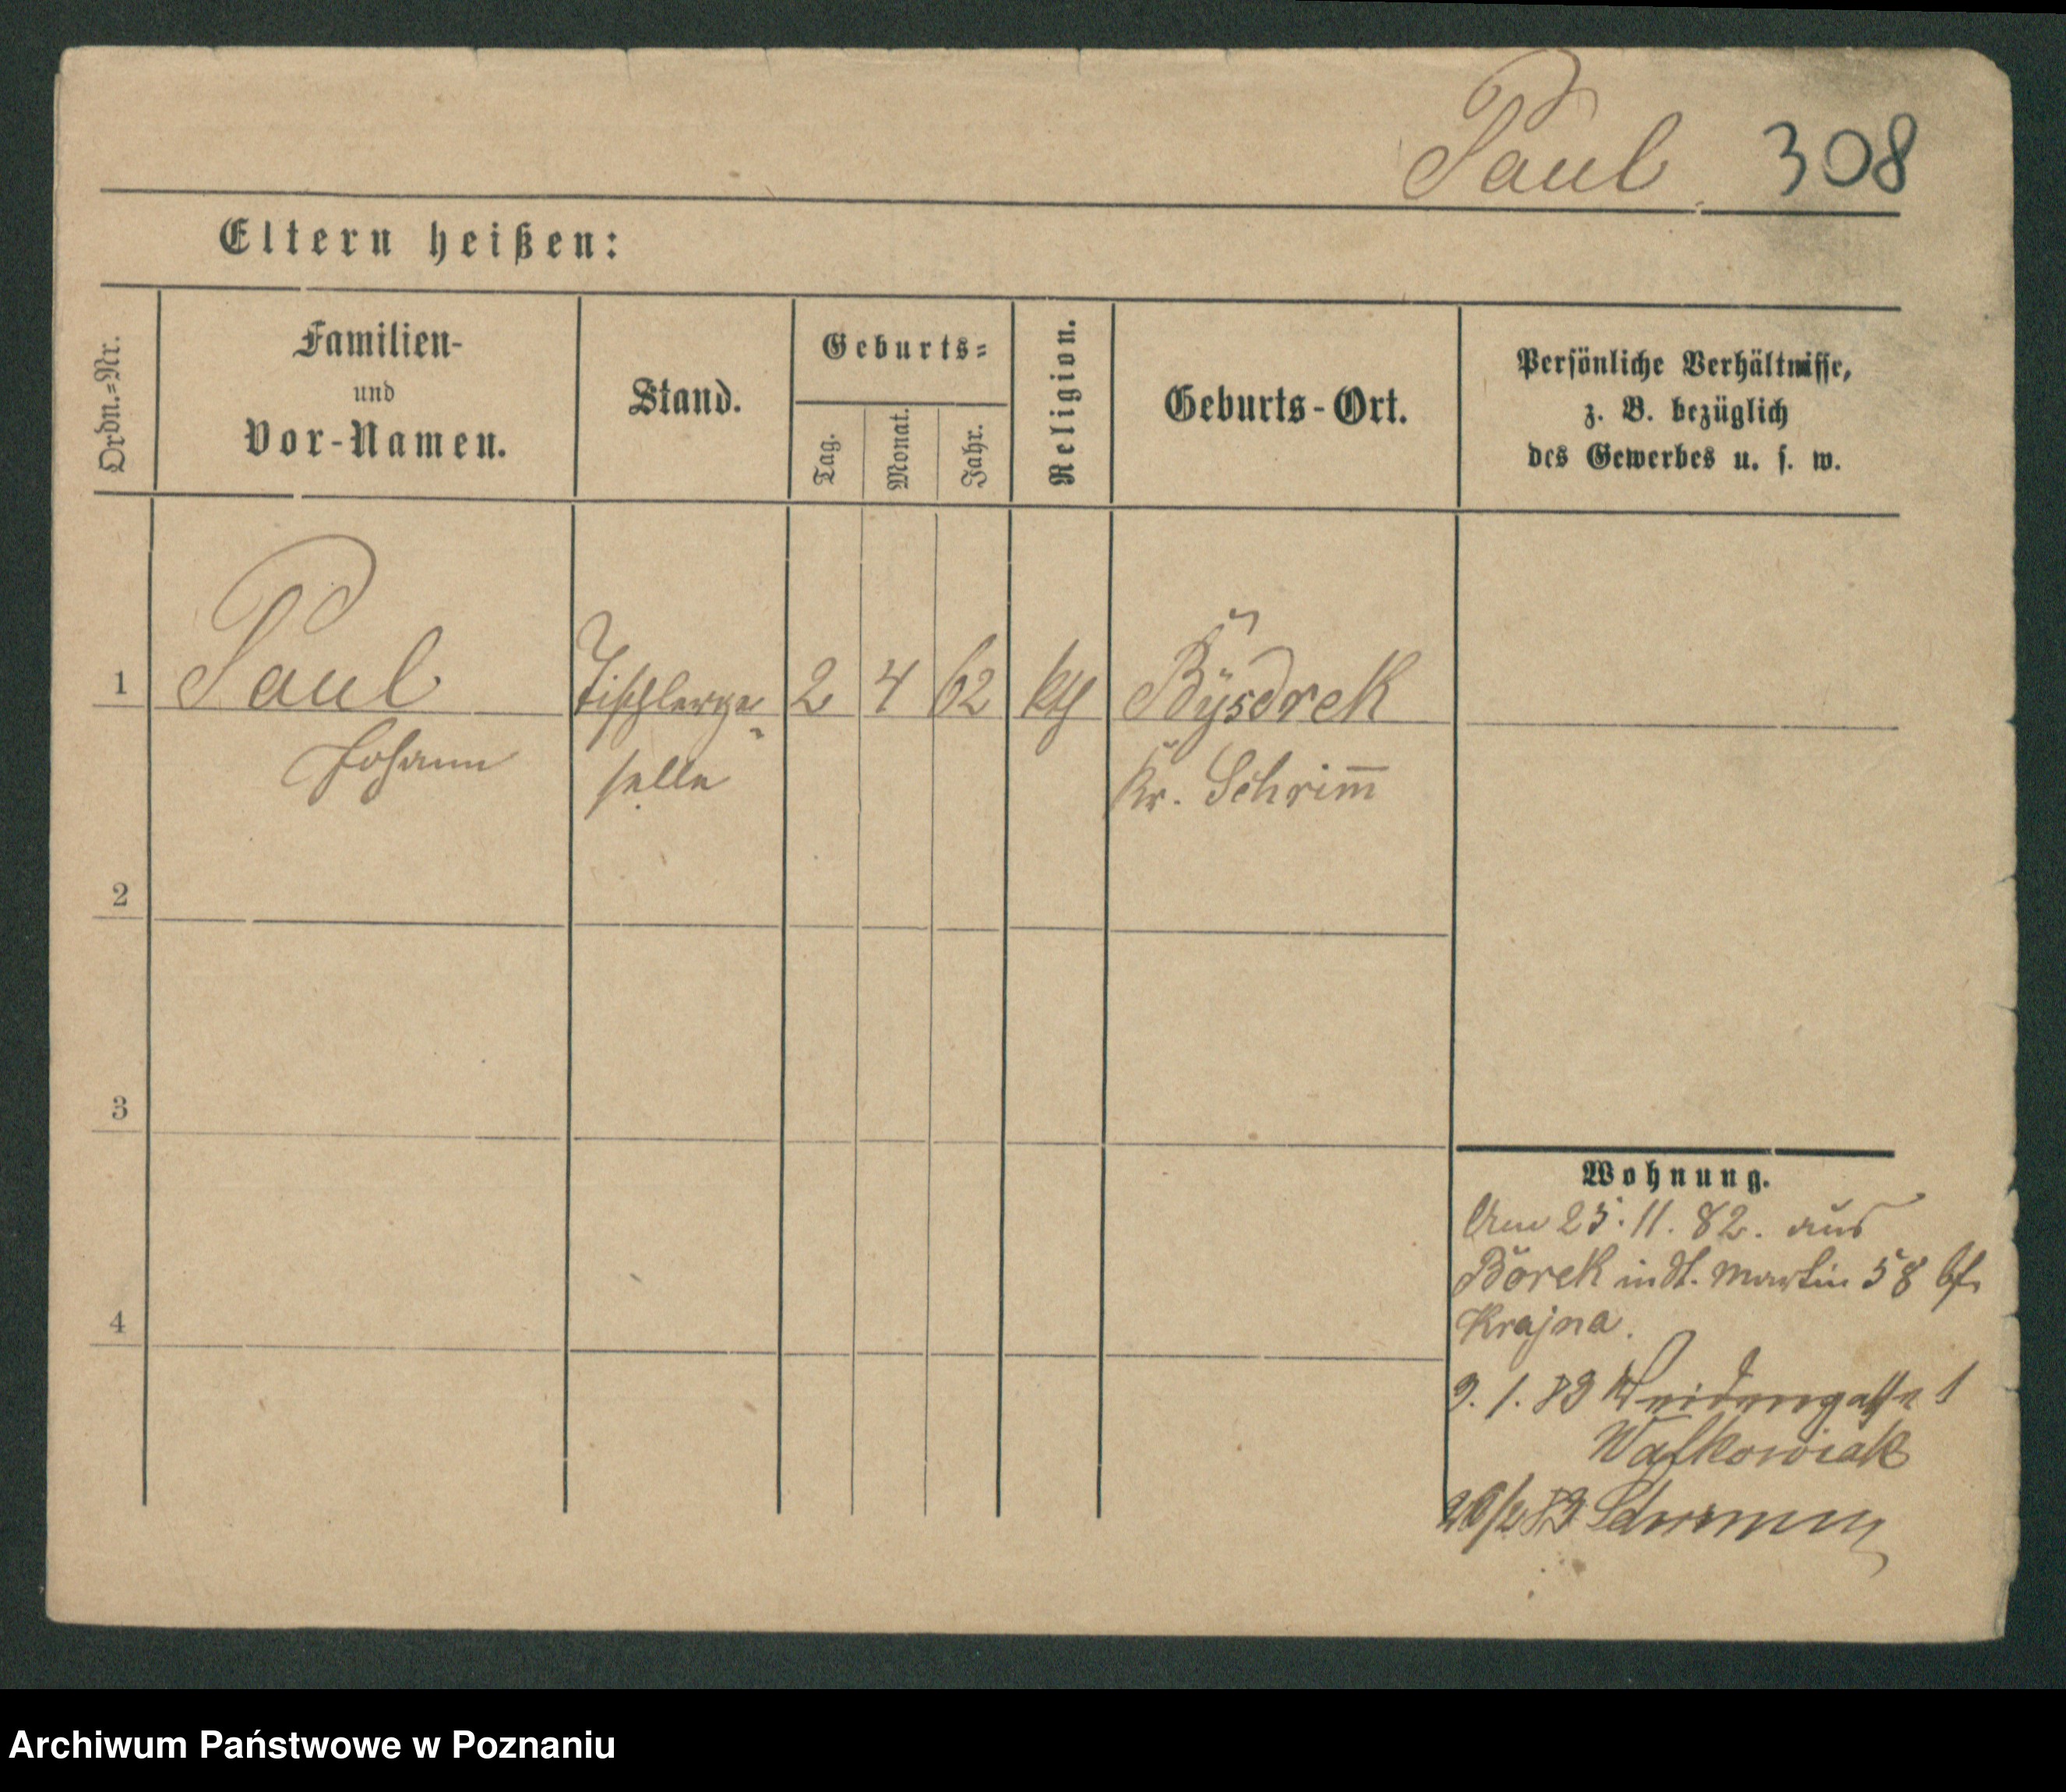 Paul 308
Eltern heißen:
Ordn.=Nr.
Familien-
und
Vor-Namen.
Stand.
Geburts=
Tag.
Monat.
Jahr.
Religion.
Geburts-Ort.
Persönliche Verhältnisse,
z. B. bezüglich
des Gewerbes u. s. w.
1 Paul Tischlerge- 2 4 62 kth
Johann selle Kr. Schrim̅
2
3
4
Wohnung.
Am 25.11.82. aus
Borek in St. Martin 58 bei
Krajna.
9.1.83 Weidengasse 1
83
Archiwum Państwowe w Poznaniu